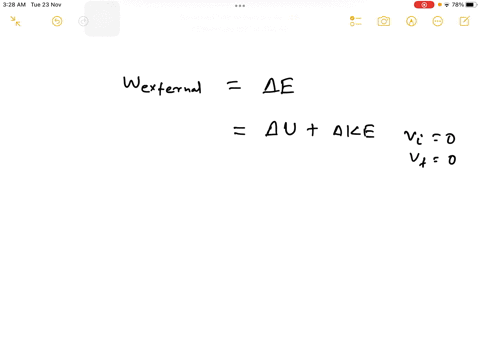 3:28 AM Tue 23 Nov
78%
Wexternal = ΔE
= ΔU + ΔKE
vi = 0
vf = 0